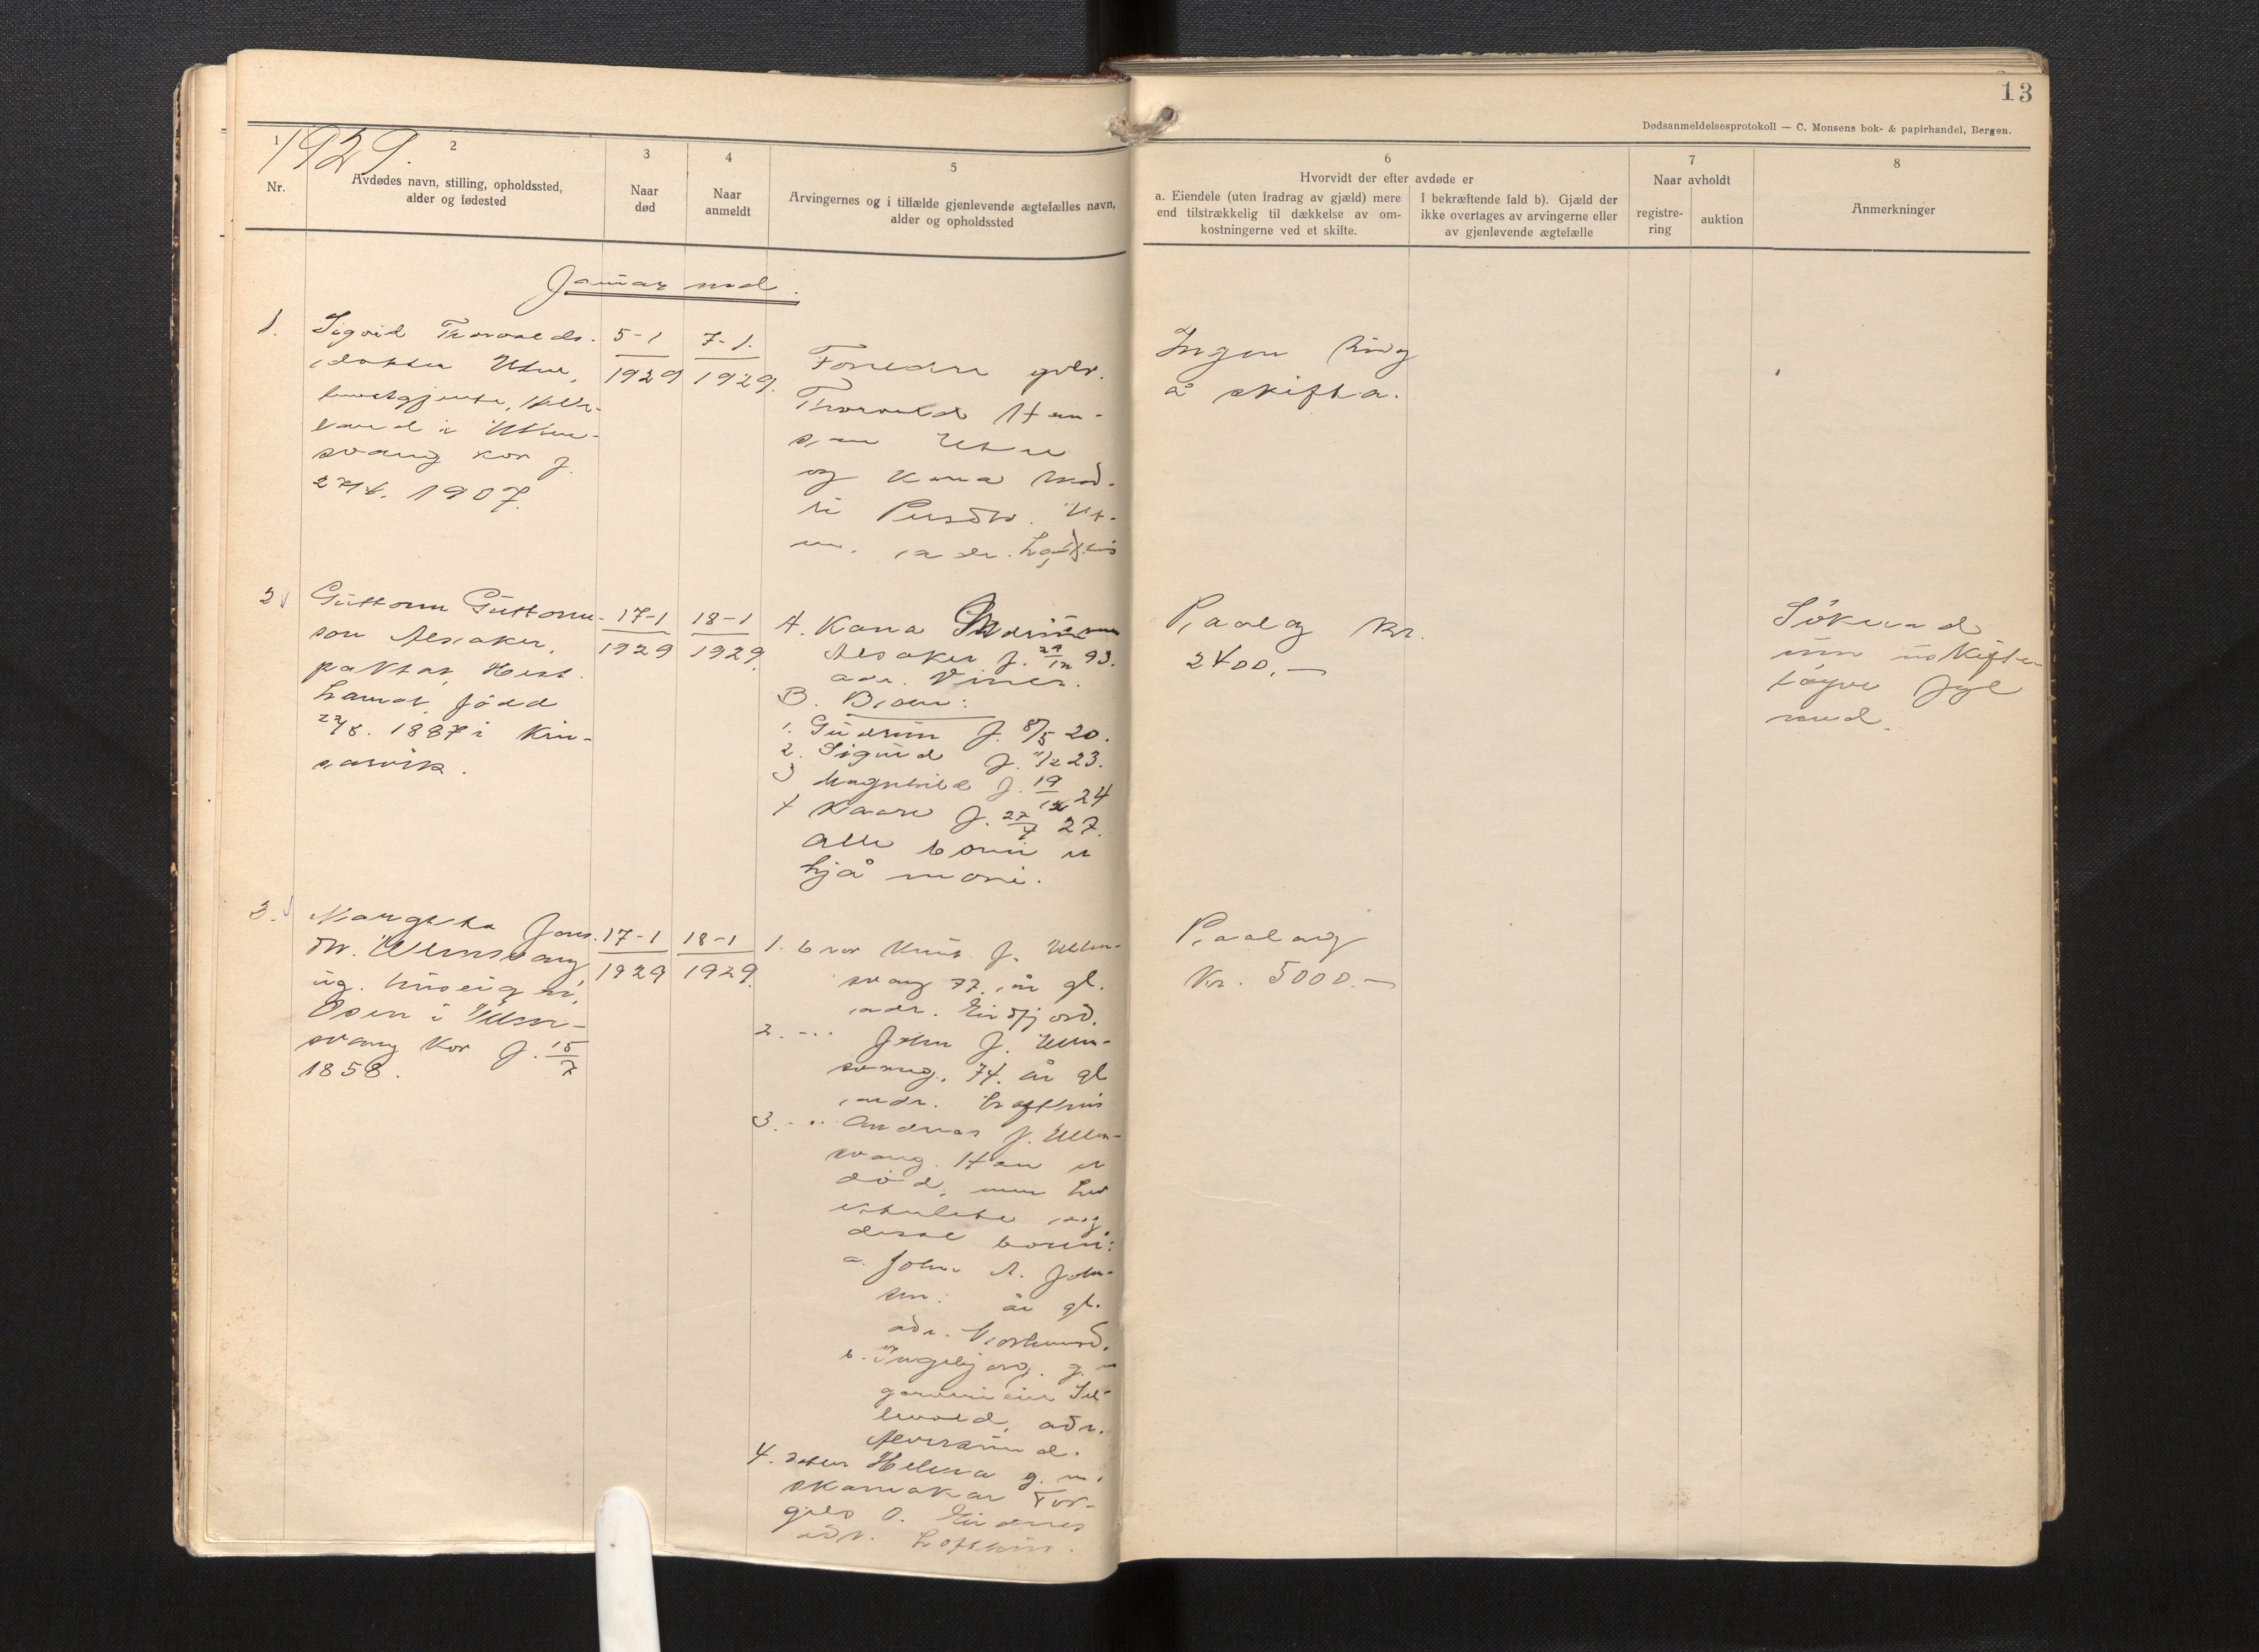 13
Dødsanmeldelsesprotokoll — C. Monsens bok- & papirhandel, Bergen.
1929.
1
Nr.
2
Avdødes navn, stilling, opholdssted,
alder og fødested
3
Naar
død
4
Naar
anmeldt
5
Arvingernes og i tilfælde gjenlevende ægtefælles navn,
alder og opholdssted
6
Hvorvidt der efter avdøde er
a. Eiendele (uten fradrag av gjæld) mere
end tilstrækkelig til dækkelse av om-
kostningerne ved et skifte.
I bekræftende fald b). Gjæld der
ikke overtages av arvingerne eller
av gjenlevende ægtefælle
7
Naar avholdt
registre-
ring
auktion
8
Anmerkninger
Januar mnd.
1.
Sigrid Thorvalds-
dotter Utne,
i Ullens-
vang kor f.
1907.
5-1
1929
7-1.
1929.
Foreldre
Thorvald Han-
son Utne
og
adr. Lofthus
Ingen ting
å skifta.
2
Guttorm Guttorm-
son Alsaker,
född
1887 i Kin-
sarvik.
17-1
1929
18-1
1929.
A. Kona
Alsaker f. 93.
adr. Vines.
B. Born:
1. Gudrun f. 8/5 20.
2. Sigurd f. 23.
3 Magnhild f. 19 24
4 Kaare f. 27/7 27.
Alle borni er
hjå mori.
Paalag kr.
2400.—
Sökund
um uskifte-
löyve fyl
med.
3.
Margreta Jons-
dtr. Ullensvang
ug. huseigar,
Opsen i Ullen-
svang kor f. 15/7
1858.
17-1
1929
18-1
1929.
1. bror Knut J. Ullen-
svang 77 år gl.
adr. Eidfjord.
2. -.. John J. Ullen-
svang, 74 år gl
adr. Lofthus
3. -.. Andreas J. Ullen-
svang. Han er
död, men hev
etterlete seg
desse born:
a. John A. John-
sen: år gl.
adr.
b. Ingebjorg, g. m
adr.
Alversund.
4. syster Helena g. m.
skomakar Tor-
gils O. Eidnes
adr. Lofthus.
Paalag
Kr. 5000.—